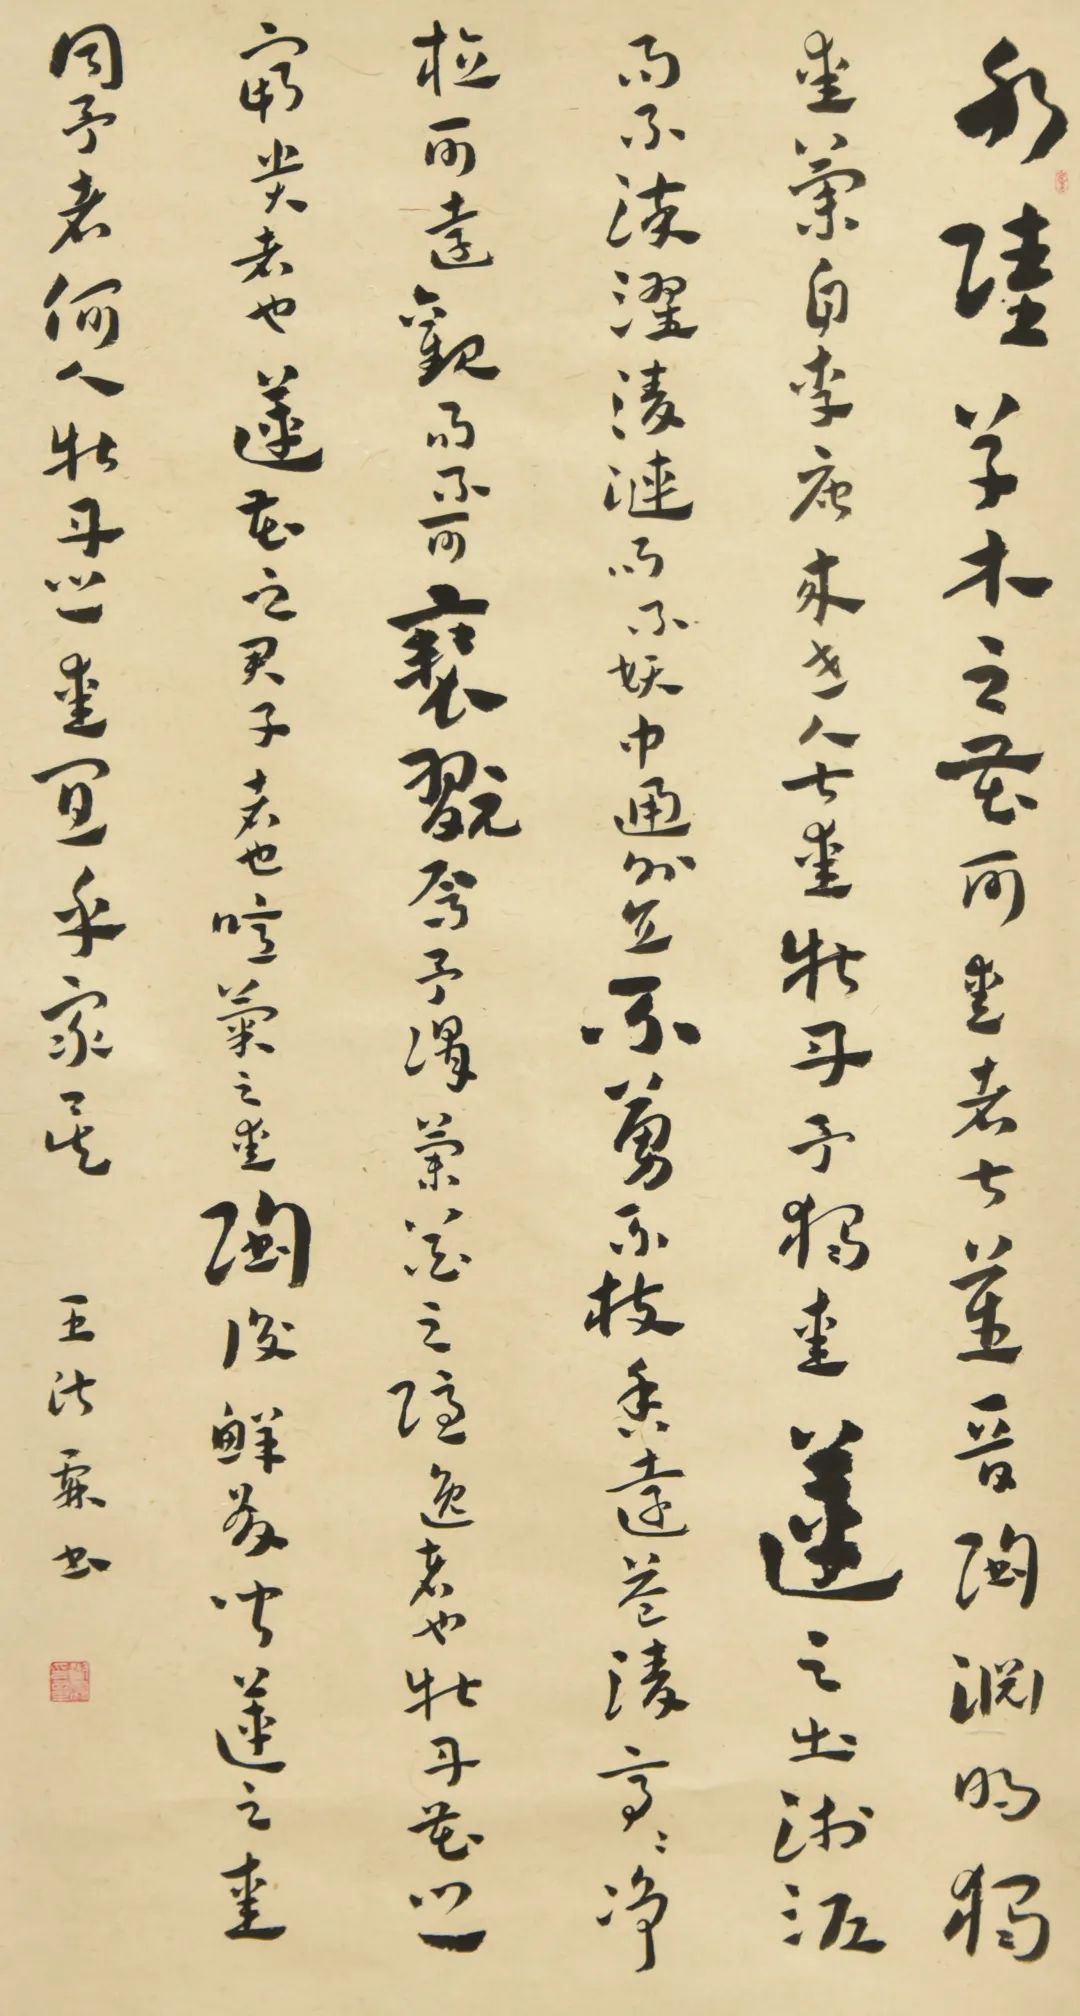 水陸草木之花可愛者甚蕃晉陶淵明獨
愛菊自李唐來世人甚愛牡丹予獨愛蓮之出淤泥
而不染濯清漣而不妖中通外直不蔓不枝香遠益清亭亭淨
植可遠觀而不可褻翫焉予謂菊花之隱逸者也牡丹花之
富貴者也蓮花之君子者也噫菊之愛陶後鮮有聞蓮之愛
同予者何人牡丹之愛宜乎眾矣
王霖書